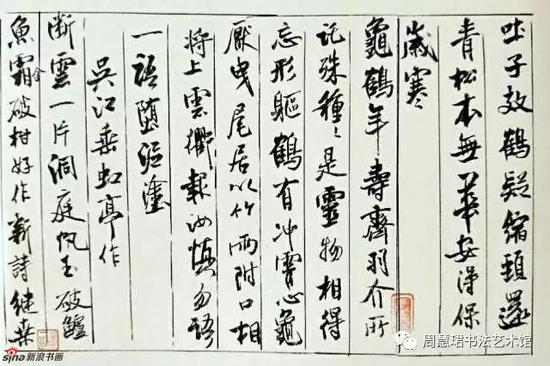 吐子效鶴疑縮頸還
青松本無華安得保
歲寒
龜鶴年壽齊羽介所
託殊種〻是靈物相得
忘形軀鶴有冲霄心龜
厭曳尾居以竹兩附口相
將上雲衢報汝慎勿語
一語墮泥塗
吳江垂虹亭作
断雲一片洞庭帆玉破鱸
魚霜金破柑好作新詩継桒
sina新浪书画
周慧珺书法艺术馆